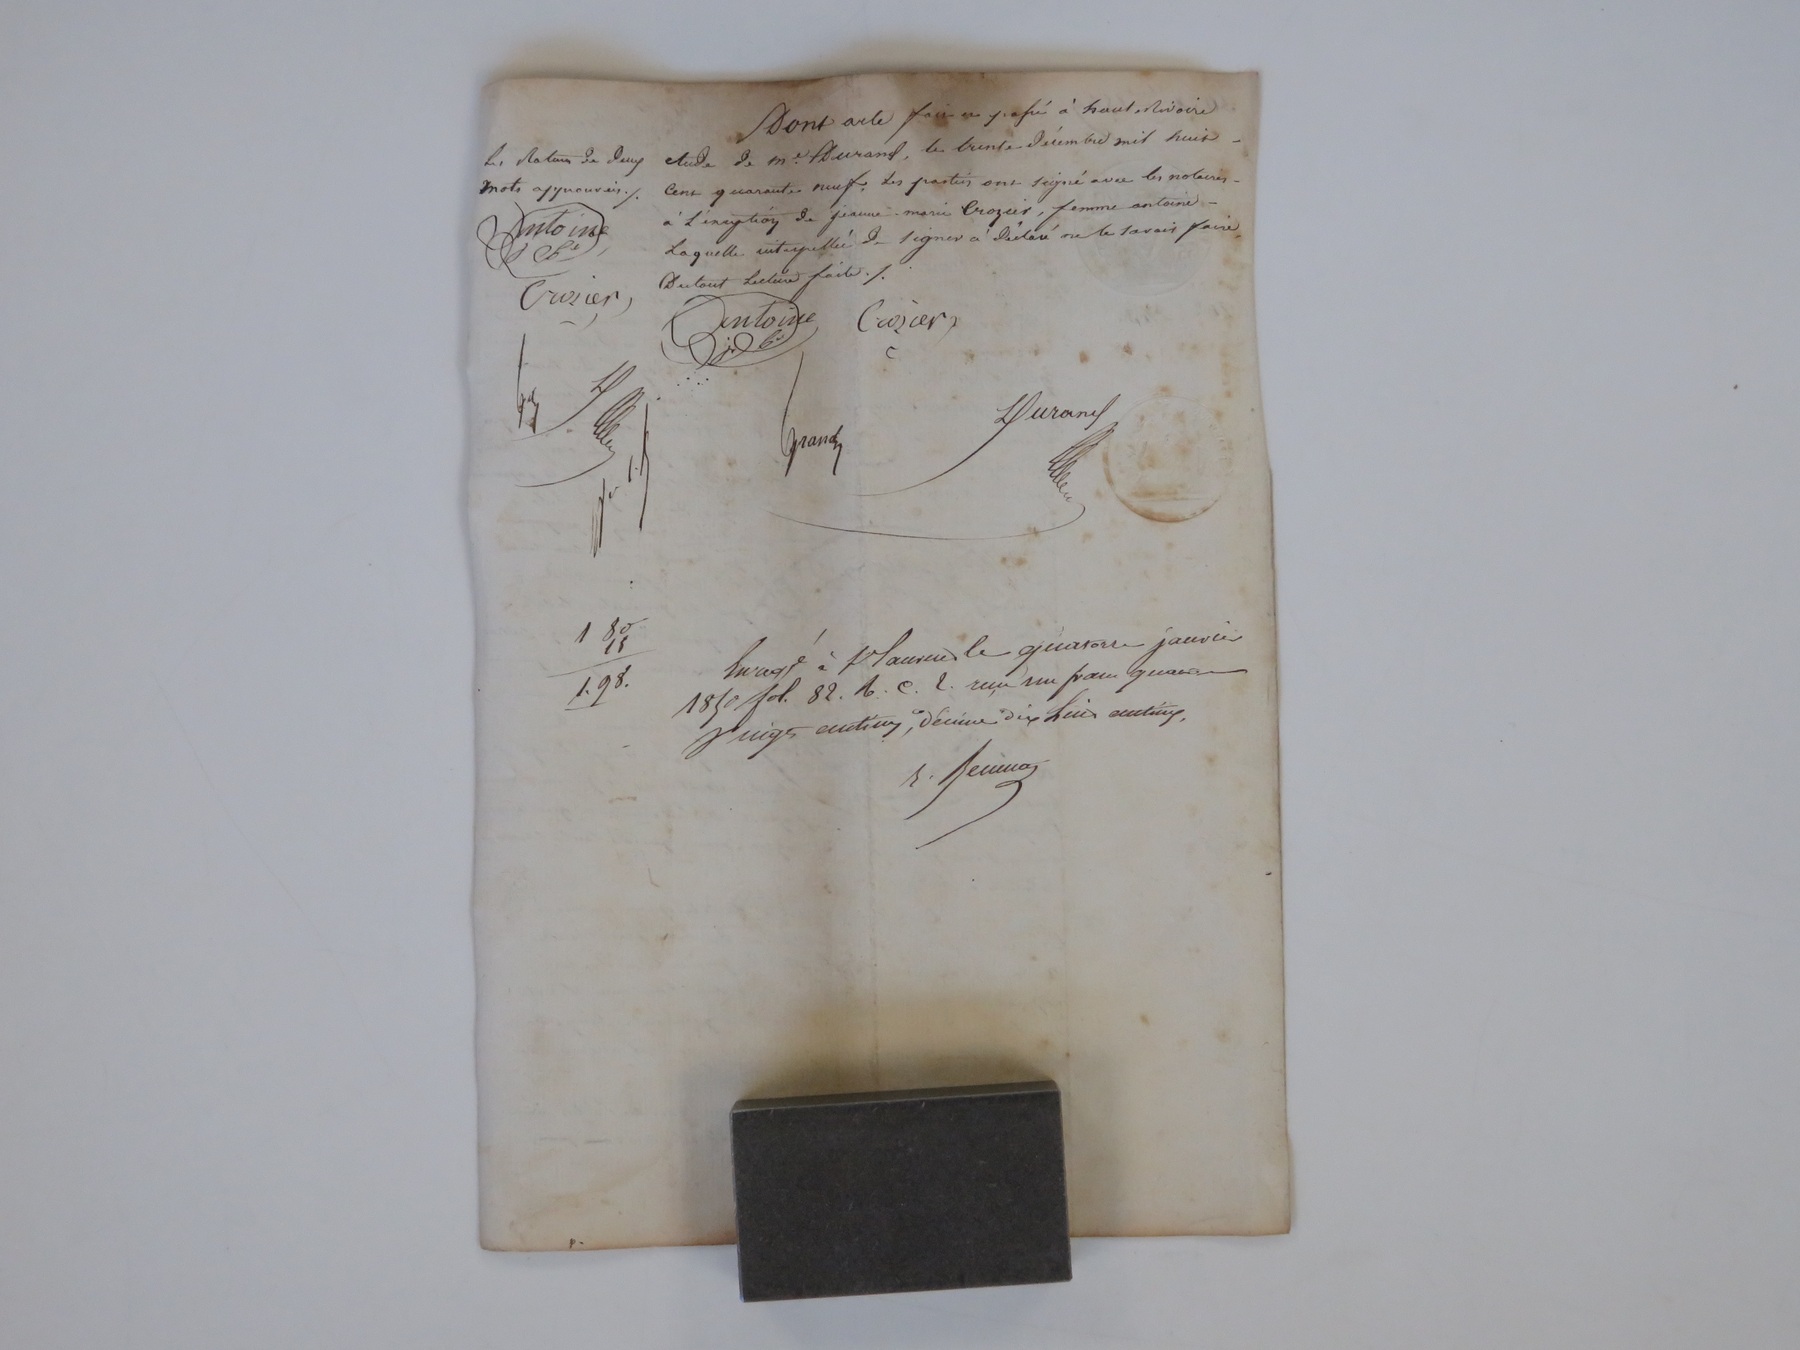 Dont acte fait et passé à haut Rivoire
étude de me Durand, le trente décembre mil huit -
cent quarante neuf. Les parties ont signé avec les notaires -
à l'exception de jeanne-marie Crozier, femme antoine -
Laquelle interpellée de signer a déclaré ne le savoir faire,
Du tout Lecture faite ./.
Les Ratures de deux
mots approuvées ./.
Antoine
Crozier,
Antoine Crozier,
Grand
Durand
1 80
18
1.98.
à St Laurent le quatorze janvier
1850 fol. 82. c. 2. reçu un franc quatre
vingts centimes, décime dix huit centimes.